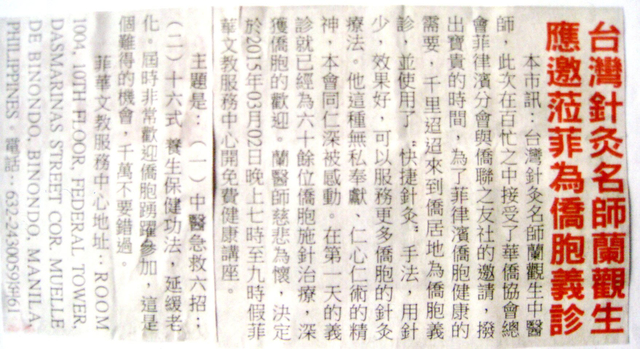 台灣針灸名師蘭觀生
應邀蒞菲為僑胞義診
本市訊：台灣針灸名師蘭觀生中醫
師，此次在百忙之中接受了華僑協會總
會菲律濱分會與僑聯之友社的邀請，撥
出寶貴的時間，為了菲律濱僑胞健康的
需要，千里迢迢來到僑居地為僑胞義
診，並使用了“快捷針灸”手法，用針
少，效果好，可以服務更多僑胞的針灸
療法。他這種無私奉獻、仁心仁術的精
神，本會同仁深被感動。在第一天的義
診就已經為六十餘位僑胞施針治療，深
獲僑胞的歡迎。蘭醫師慈悲為懷，決定
於2015年03月02日晚上七時至九時假菲
華文教服務中心開免費健康講座。
主題是：（一）中醫急救六招；
（二）十六式養生保健功法，延緩老
化。屆時非常歡迎僑胞踴躍參加，這是
個難得的機會，千萬不要錯過。
菲華文教服務中心地址：ROOM
1004, 10TH FLOOR, FEDERAL TOWER,
DASMARINAS STREET COR. MUELLE
DE BINONDO, BINONDO, MANILA,
PHILIPPINES，電話：632-2430059轉61